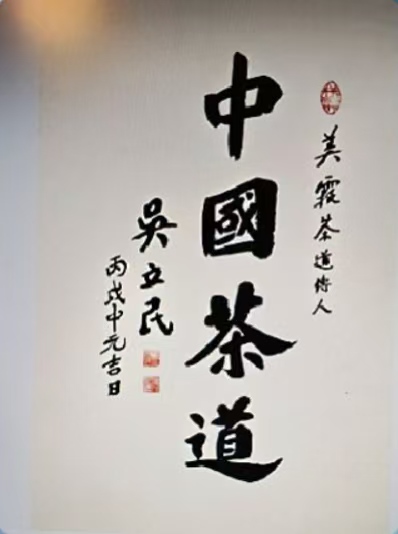 美霞茶道傳人
中國茶道
吳立民
丙戌中元吉日